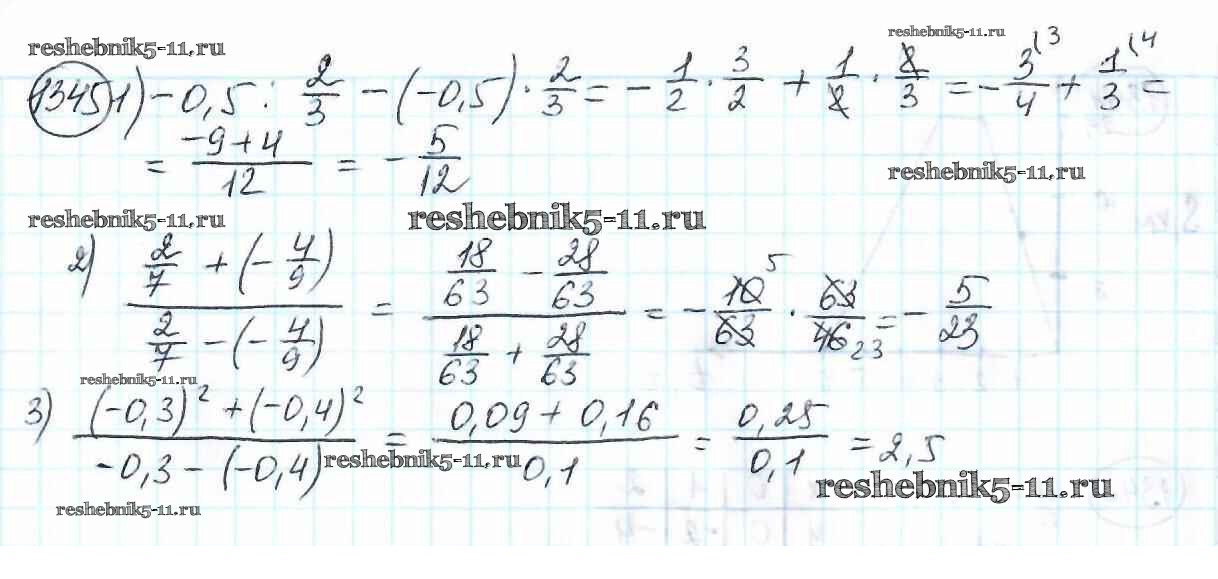 reshebnik5-11.ru reshebnik5-11.ru
1345 1) -0,5 : 2/3 - (-0,5) · 2/3 = - 1/2 · 3/2 + 1/2 · 2/3 = - 3/4 (3 + 1/3 (4 =
= (-9+4)/12 = - 5/12 reshebnik5-11.ru
reshebnik5-11.ru reshebnik5-11.ru
2) (2/7 + (- 4/9))/(2/7 - (- 4/9)) = (18/63 - 28/63)/(18/63 + 28/63) = - 10/63 5 · 63/46 23 = - 5/23
reshebnik5-11.ru
3) ((-0,3)² + (-0,4)²)/(-0,3 - (-0,4)) = (0,09 + 0,16)/0,1 = 0,25/0,1 = 2,5
reshebnik5-11.ru reshebnik5-11.ru
reshebnik5-11.ru